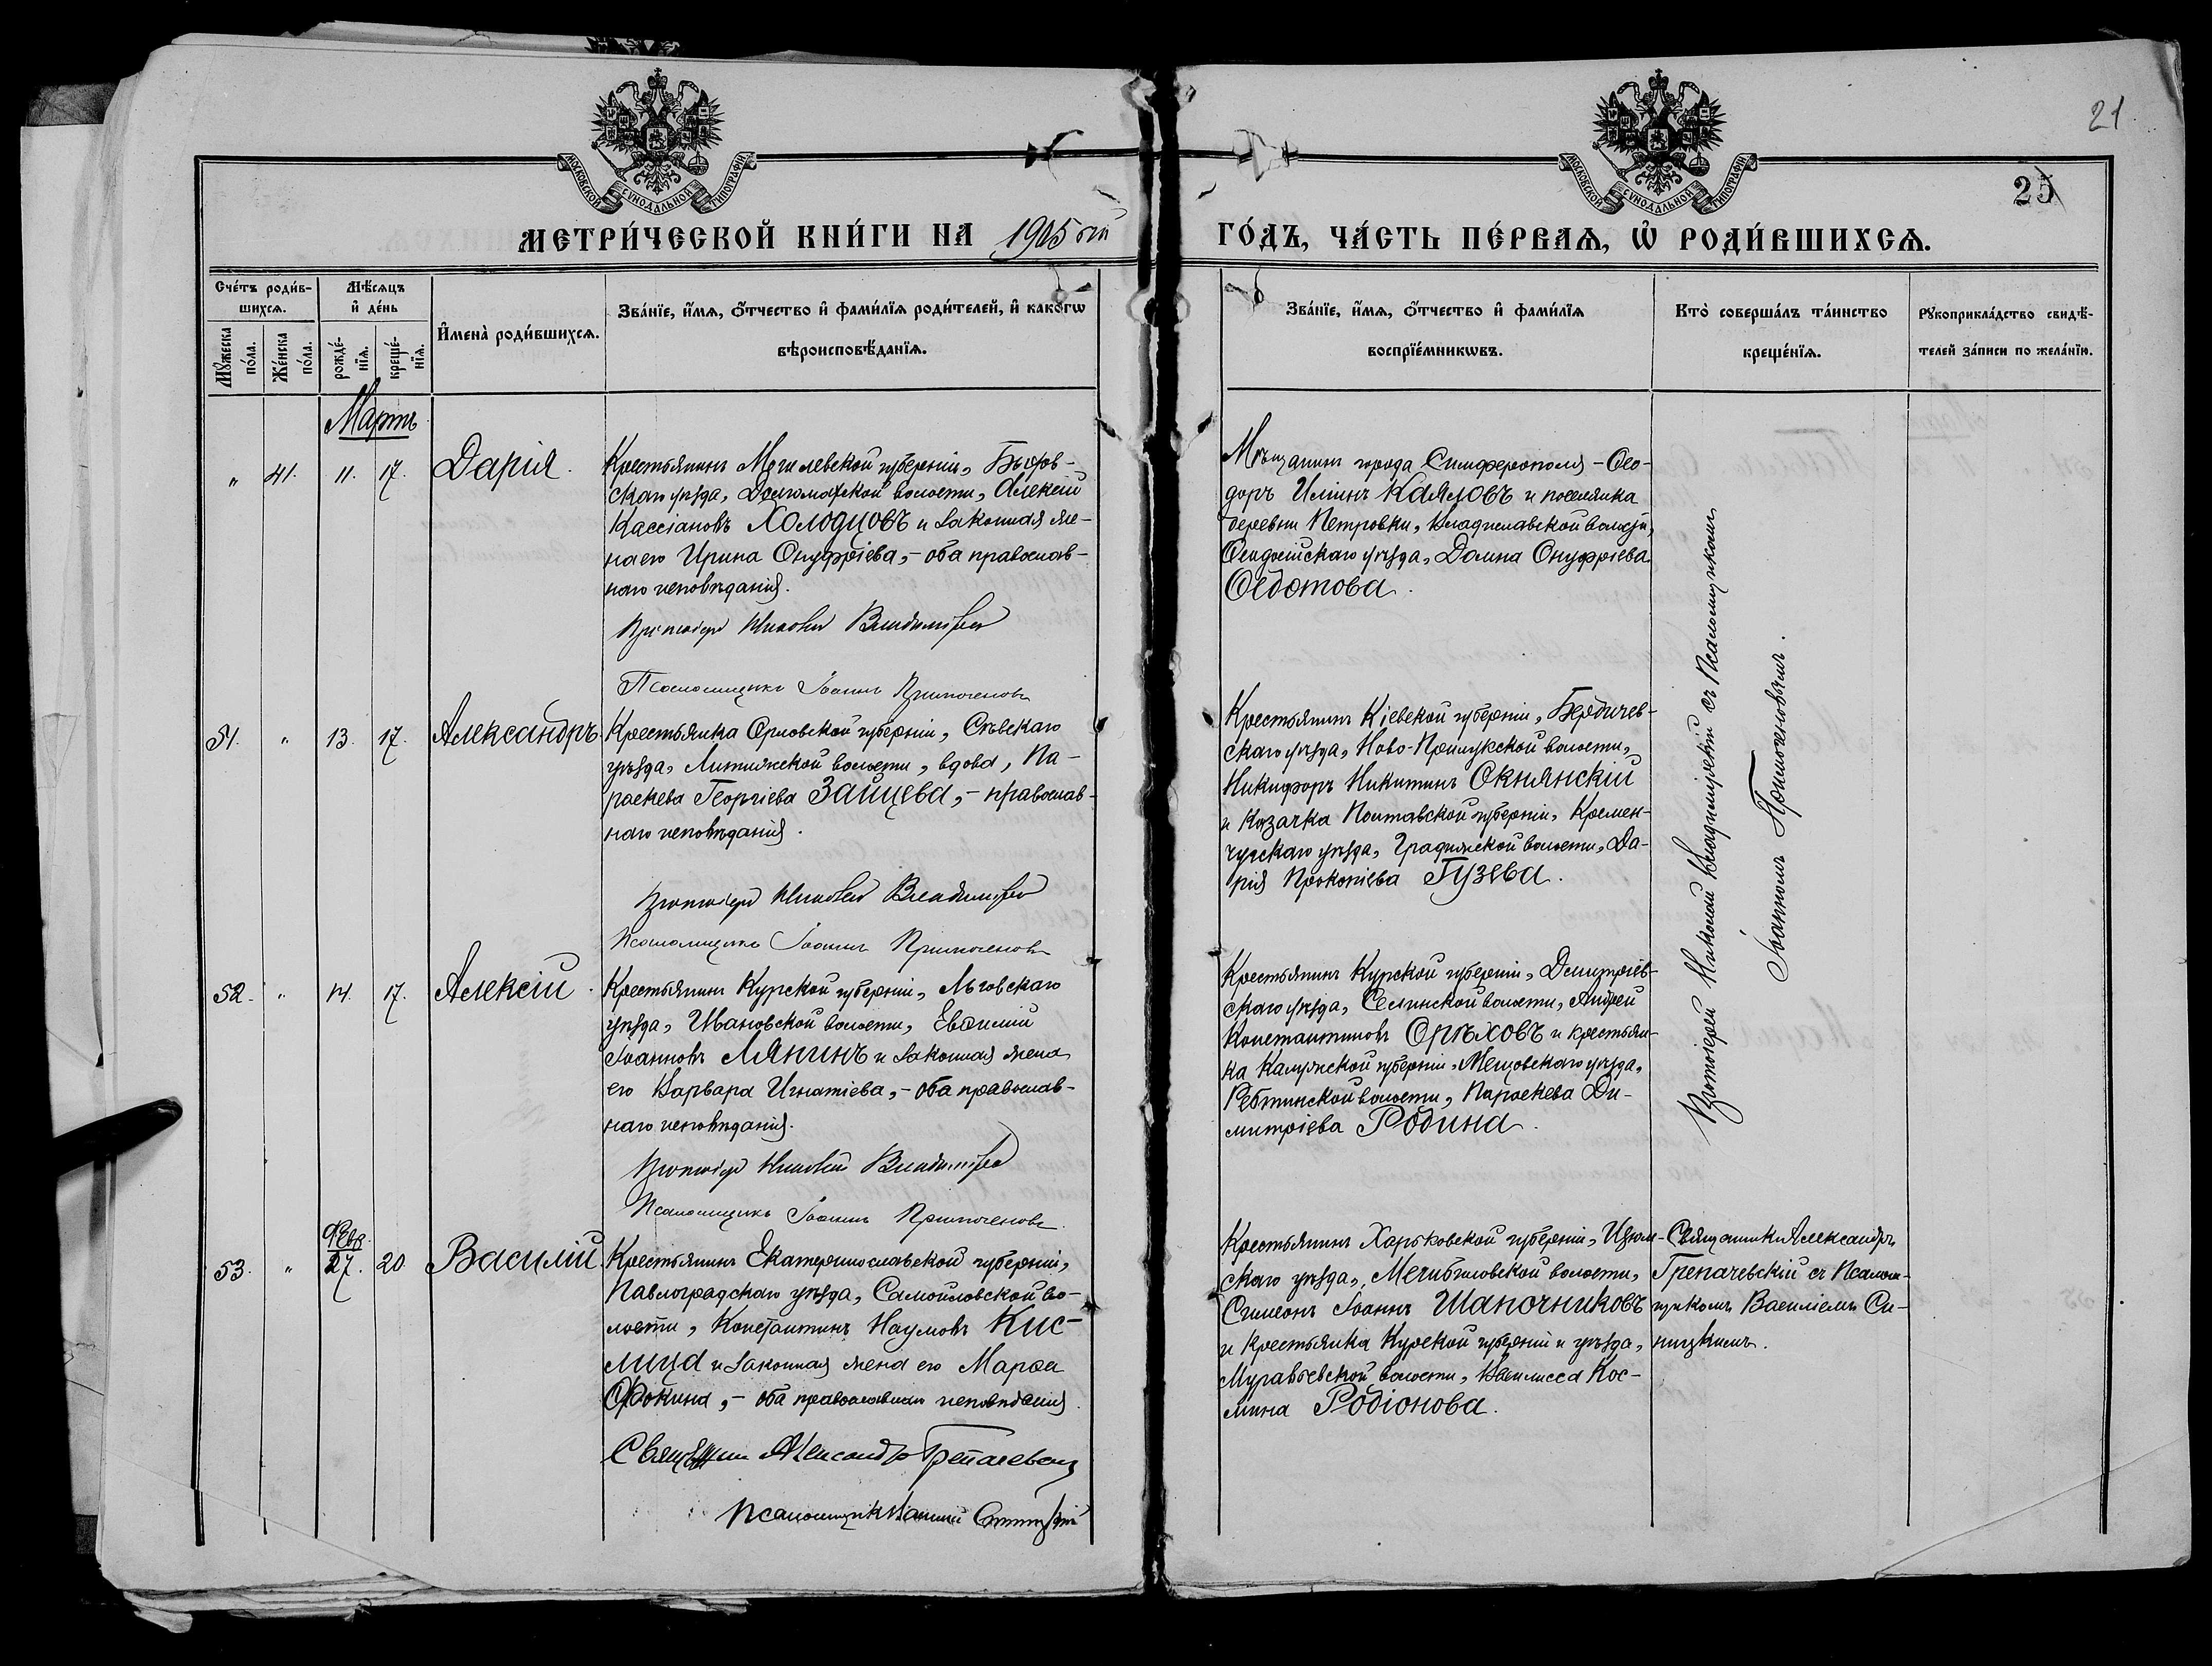 21
25
МОСКОВСКОЙ СУНОДАЛЬНОЙ ТИПОГРАФІИ
МОСКОВСКОЙ СУНОДАЛЬНОЙ ТИПОГРАФІИ
МЕТРИ́ЧЕСКОЙ КНИ́ГИ НА 1905 ый
ГО́ДЪ, ЧА́СТЬ ПЕ́РВАѦ, Ѡ҆ РОДИ́ВШИХСѦ.
Сче́тъ роди́в-
шихсѧ.
Мꙋ́жеска по́ла.
Же́нска по́ла.
Мѣ́сѧцъ
и҆ де́нь
рожде́-
нїѧ.
креще́-
нїѧ.
И҆мена̀ роди́вшихсѧ.
Зва́нїе, и҆́мѧ, ѻ҆́тчество и҆ фами́лїѧ роди́телей, и҆ како́гѡ
вѣроисповѣ́данїѧ.
Зва́нїе, и҆́мѧ, ѻ҆́тчество и҆ фами́лїѧ
воспрїе́мникѡвъ.
Кто̀ соверша́лъ та́инство
креще́нїѧ.
Рꙋкоприкла́дство свидѣ́-
телей за́писи по жела́нїю.
Мартъ
" 41. 11. 17. Дарія.
Крестьянинъ Могилевской губерніи, Быхов-
скаго уѣзда, волости, Алексій
Кассіановъ Холодцовъ и законная же-
на его Ирина Онуфріева, – оба православ-
наго исповѣданія.
Протоіерей Николай Владимірскій
Псаломщикъ Іоаннъ
Мѣщанинъ города Симферополя – Ѳео-
доръ Иліинъ Каяловъ и поселянка
деревни Петровки, Владиславской волости,
Ѳеодосійскаго уѣзда, Домна Онуфріева
Ѳедотова.
51. " 13. 17. Александръ.
Крестьянка Орловской губерніи, Сѣвскаго
уѣзда, Литижской волости, вдова, Па-
раскева Георгіева Зайцева, – православ-
наго исповѣданія.
Протоіерей Николай Владимірскій
Псаломщикъ Іоаннъ
Крестьянинъ Кіевской губерніи, Бердичев-
скаго уѣзда, Ново-Прилукской волости,
Никифоръ Никитинъ Окнянскій
и козачка Полтавской губерніи, Кремен-
чугскаго уѣзда, Градижской волости, Да-
рія Прокопіева Гузева.
52. " 14. 17. Алексій.
Крестьянинъ Курской губерніи, Льговскаго
уѣзда, Ивановской волости, Евѳимій
Іоанновъ Лянинъ и законная жена
его Варвара Игнатіева, – оба православ-
наго исповѣданія.
Протоіерей Николай Владимірскій
Псаломщикъ Іоаннъ
Крестьянинъ Курской губерніи, Дмитріев-
скаго уѣзда, Селинской волости, Андрей
Константиновъ Орѣховъ и крестьян-
ка Калужской губерніи, Мещовскаго уѣзда,
волости, Параскева Ди-
митріева Родина.
Протоіерей Николай Владимірскій съ Псаломщикомъ
Іоанномъ
53. " Февр. 27. 20. Василій.
Крестьянинъ Екатеринославской губерніи,
Павлоградскаго уѣзда, Самойловской во-
лости, Константинъ Наумовъ Кис-
лица и законная жена его Марѳа
Фокина, – оба православнаго исповѣданія.
Священникъ Александръ Грепачевскій
Псаломщикъ Василій Синицкій
Крестьянинъ Харьковской губерніи, Изюм-
скаго уѣзда, Мечибиловской волости,
Симеонъ Іоаннъ Шапочниковъ
и крестьянка Курской губерніи и уѣзда,
Муравьевской волости, Василисса Кос-
мина Родіонова.
Священникъ Александръ
Грепачевскій съ Псалом-
щикомъ Василіемъ Си-
ницкимъ.